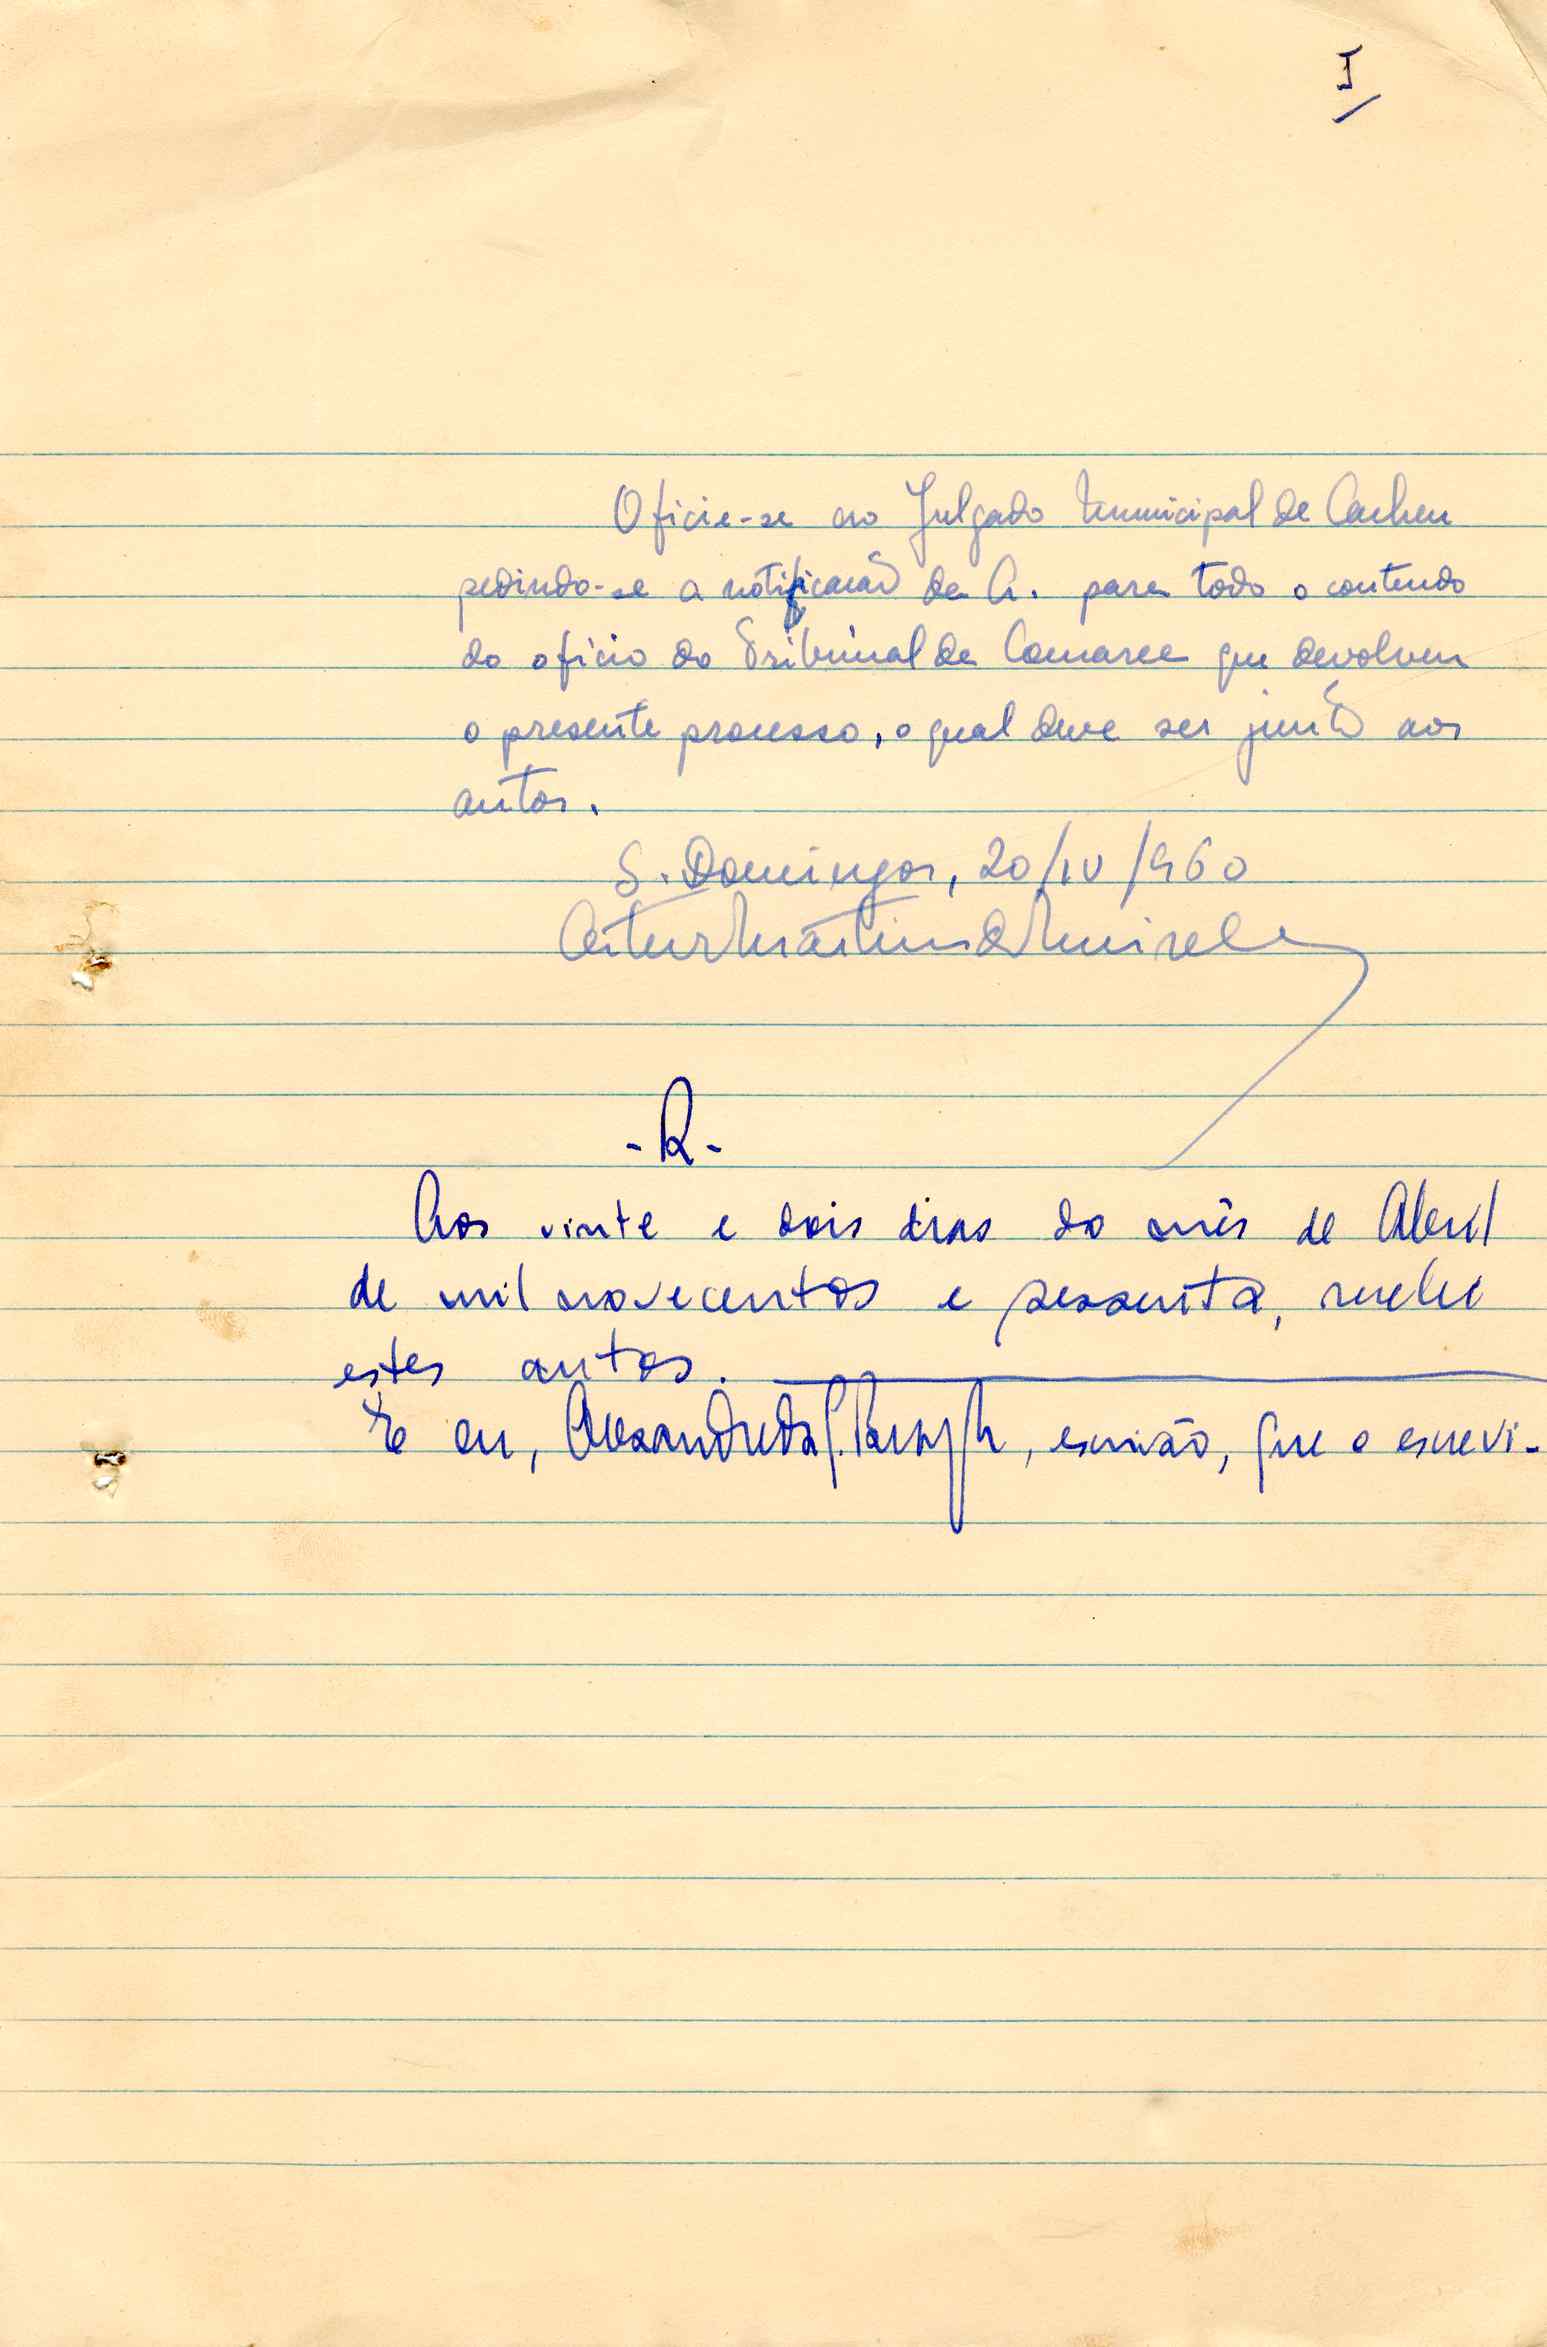 I
Oficie-se ao Julgado Municipal de Cacheu
pedindo-se a notificação da A. para todo o conteudo
do oficio do Tribunal da Comarca que devolveu
o presente processo, o qual deve ser junto aos
autos.
S. Domingos, 20/IV/960
Artur Martins de Meireles
-R-
Aos vinte e dois dias do mês de Abril
de mil novecentos e sessenta, recebi
estes autos.
E eu, Alexandre da, escrivão, que o escrevi-